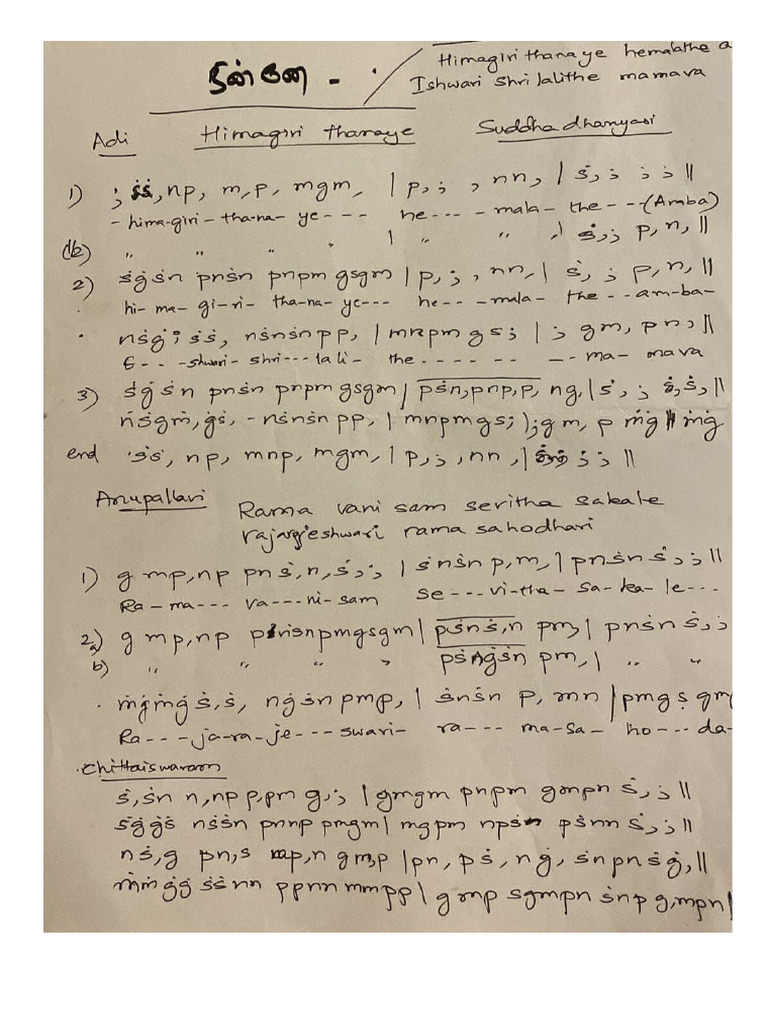 நின்னே -
Himagiri thanaye hemalathe a
Ishwari shri lalithe mamava
Adi Himagiri thanaye Suddha dhanyasi
1) ; ṡṡ, np, m,p, mgm, | p, ; , nn, | ṡ, ; ; ; ||
- hima-giri-tha-na- ye--- he---- mala- the---(Amba)
(1b) " " " " | " " , | ṡ, ; p, n, ||
2) ṡġṡn pnṡn pnpm gsgm | p, ; , nn, | ṡ, ; p, n, ||
hi- ma- gi-ri- tha-na- ye--- he--- mala- the---am-ba-
nṡġ ; ṡṡ, nṡnṡn pp, | mnpm gs ; | ; gm, pn, ||
E-- -shwari- shri---lali- the- - - - - - - -- ma- mava
3) ṡġṡn pnṡn pnpm gsgm | pṡn,pnp,p, nġ, | ṡ, ; ṡ,ṡ, ||
ṅṡġṁ,ġṡ, - nṡnṡn pp, | mnpm gs; | ;gm, p ṁġ || ṁġ
end ṡṡ, np, mnp, mgm, | p, ; , nn , | ; ; ||
Anupallavi Rama vani sam seritha sakale
rajarajeshwari rama sahodhari
1) g mp,np pnṡ,n,ṡ, ; | ṡnṡn p,m, | pnṡn ṡ, ; ||
Ra-ma--- va---ni-sam se---vi-tha- sa-ka-le---
2a) g mp,np pṡnpmgsgm | pṡnṡ,n pm, | pnṡn ṡ, ;
b) " " " " pṡġṡn pm, | " "
ṁġṁġ ṡ,ṡ, nġṡn pmp, | ṡnṡn p, mn | pmgs gm
Ra---ja-ra-je---swari- ra--- ma-sa- ho---da-
chittaiswaram
ṡ,ṡn n,np p,pm g, ; | gmgm pnpm gmpn ṡ, ; ||
ṡġġṡ nṡṡn pnnp pmgm | mgpm npṡn pṡnn ṡ, ; ||
nṡ,g pn,s mp,n gm,p | pn, pṡ, nġ, ṡnpnṡġ, ||
ṁṁġġ ṡṡnn ppnn mmpp | gmp sgmpn ṡnp g,mpn |